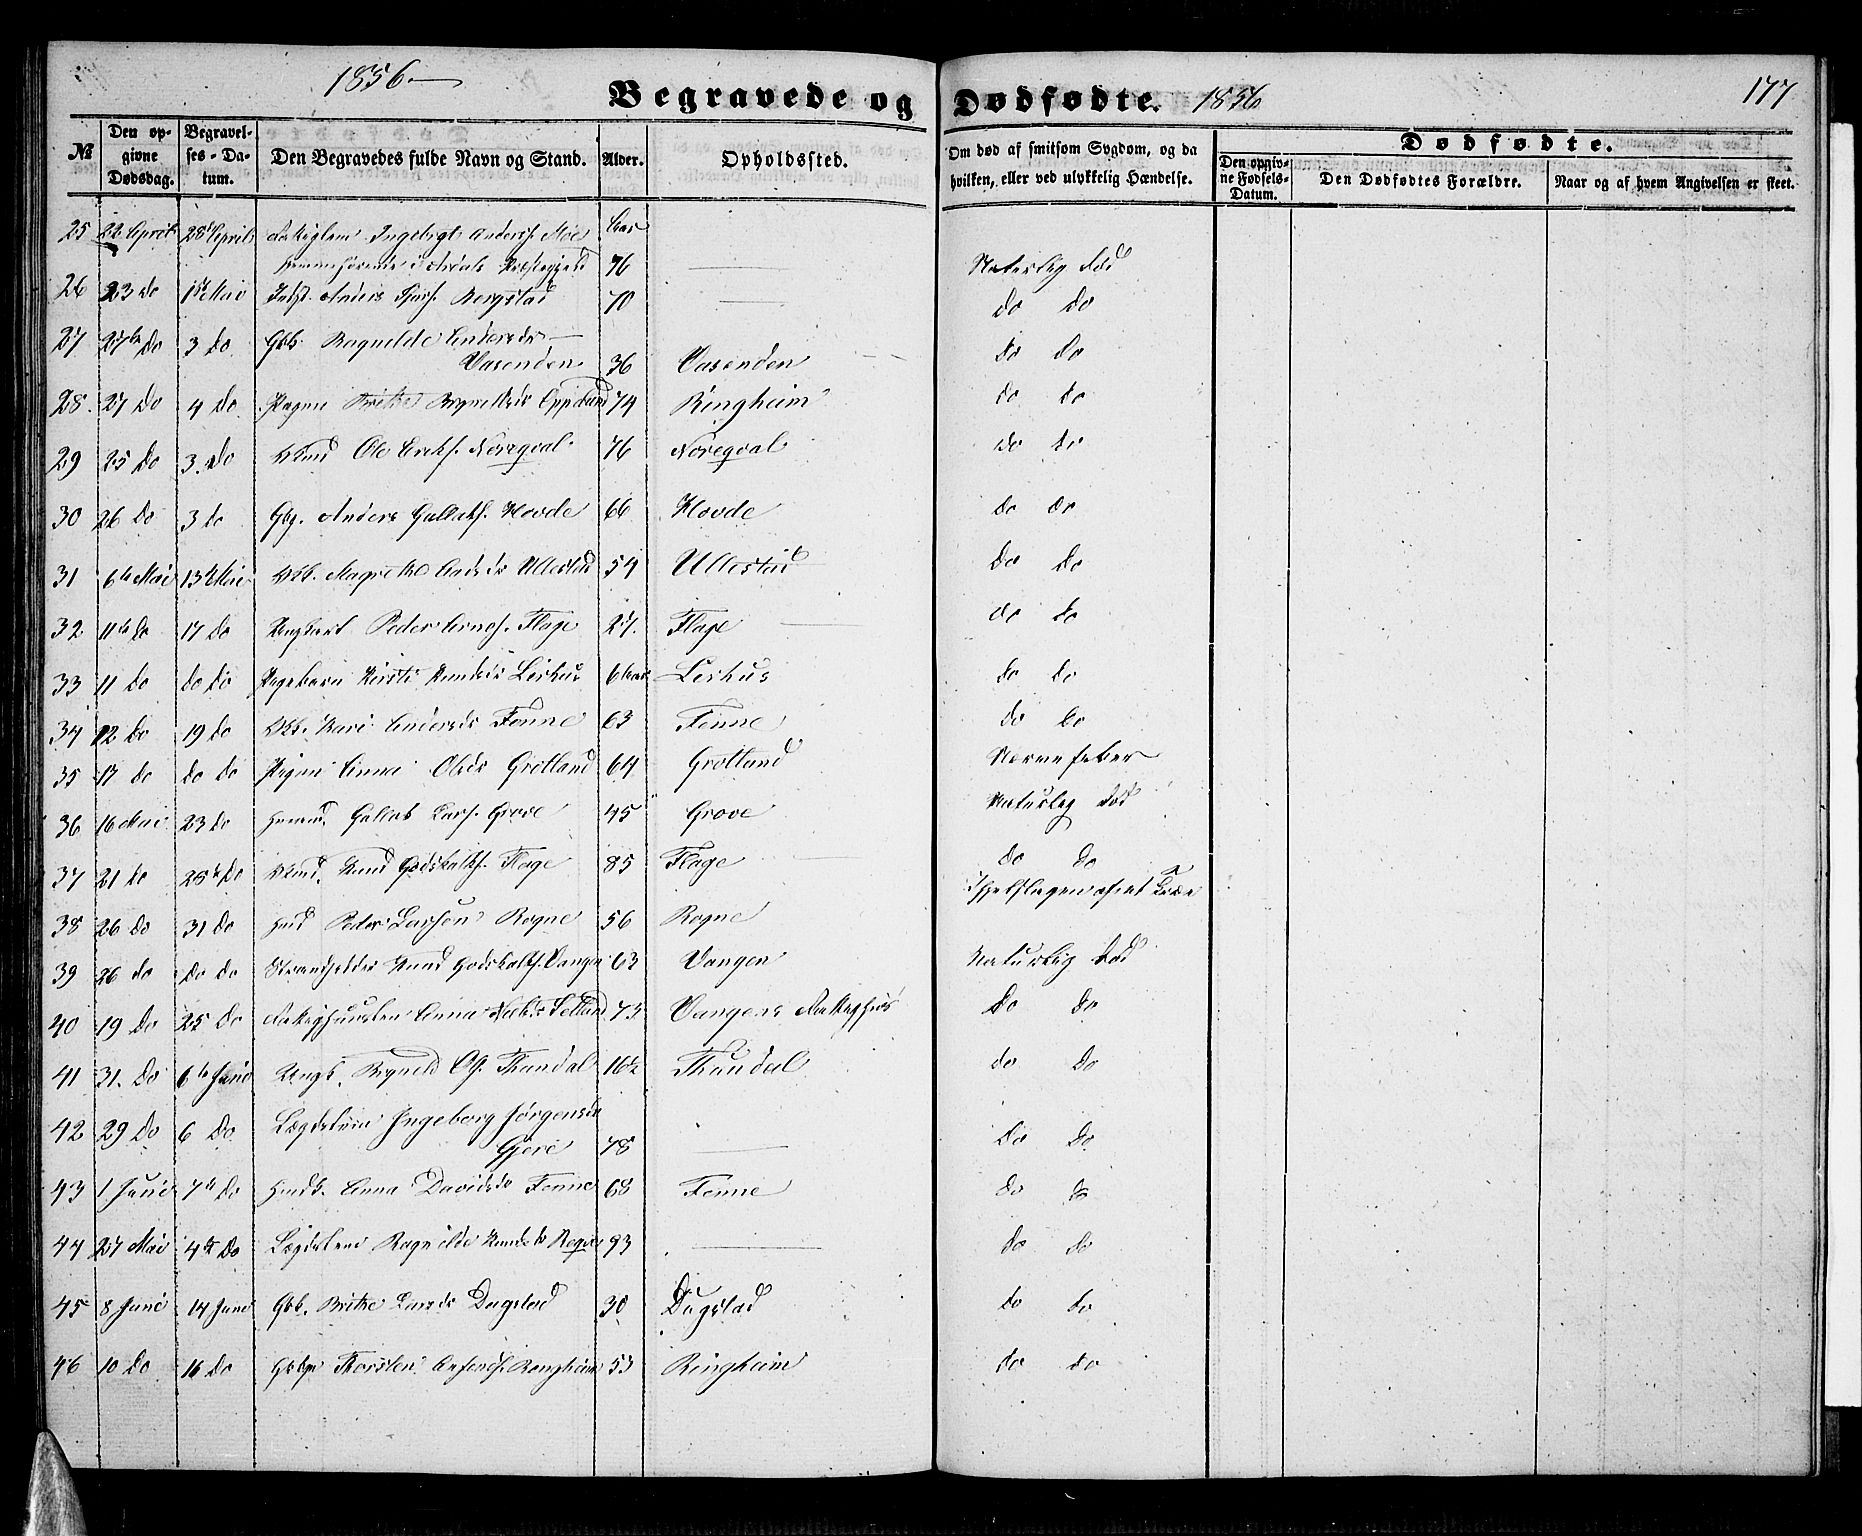 1856
Begravede og Dødfødte. 1856
177
№
Den op-
givne
Dødsdag.
Begravel-
ses-Da-
tum.
Den Begravedes fulde Navn og Stand.
Alder.
Opholdssted.
Om død af smitsom Sygdom, og da
hvilken, eller ved ulykkelig Hændelse.
Dødfødte.
Den opgiv-
ne Fødsels-
Datum.
Den Dødfødtes Forældre.
Naar og af hvem Angivelsen er skeet.
25 22 April 28 April Ingebrigt Anders. Moe
76 Naturlig Død
26 23 Do 1ste Mai Anders Bergstad 70 Do Do
27 27de Do 3 Do Gbk. Ragnilde Andersdr
Vasenden 36 Vasenden Do Do
28. 27 Do 4 Do Pigen Brithe Oppelund 74 Ringheim Do Do
29 25 Do 3. Do Ole Eriks. Noreqval 76 Noreqval Do Do
30 26 Do 3 Do Gbg. Anders Gullaks. Hovde 66 Hovde Do Do
31 6te Mai 13de Mai Magrethe Andsdr Ullestad 54 Ullestad Do Do
32 11te Do 17 Do Ungkarl Peder Arnes. Flage 27. Flage Do Do
33 11 Do Do Do Pigebarn Kirsti Knudsdr Lirhus 6 Lirhus Do Do
34 12 Do 19 Do Kari Andersdr Fenne 63 Fenne Do Do
35 17 Do Do Do Pigen Anna Olsdr Grotland 64 Grotland Nervefeber
36 16 Mai 23 Do Gullak Lars. Grove 45 Grove Naturlig Død
37 21 Do 28de Do Knud Godskalks. Flage 85 Flage Do Do
38 26 Do 31 Do Peder Larsen Rogne 56 Rogne Ihjelslagen af et Træe
39 26 Do Do Do Strandsidder Knud Godskalks. Vangen 63 Vangen Naturlig Død
40 19 Do 25 Do Anna Nielsdr 73 Vangens Do Do
41 31. Do 6te Juni Ungk. Brynild Ols. Thundal 16½ Thundal Do Do
42 29 Do 6 Do Lægdslem Ingeborg Jørgensdr
Gjere 78 Do Do
43 1 Juni 7de Do Anna Davidsdr Fenne 68 Fenne Do Do
44 27 Mai 4de Do Lægdslem Ragnilde Knudsdr 93 Do Do
45 8 Juni 14 Juni Gbk. Brithe Larsdr Dugstad 30 Dugstad Do Do
46 10 Do 16 Do Thorsten Ringheim 53 Ringheim Do Do